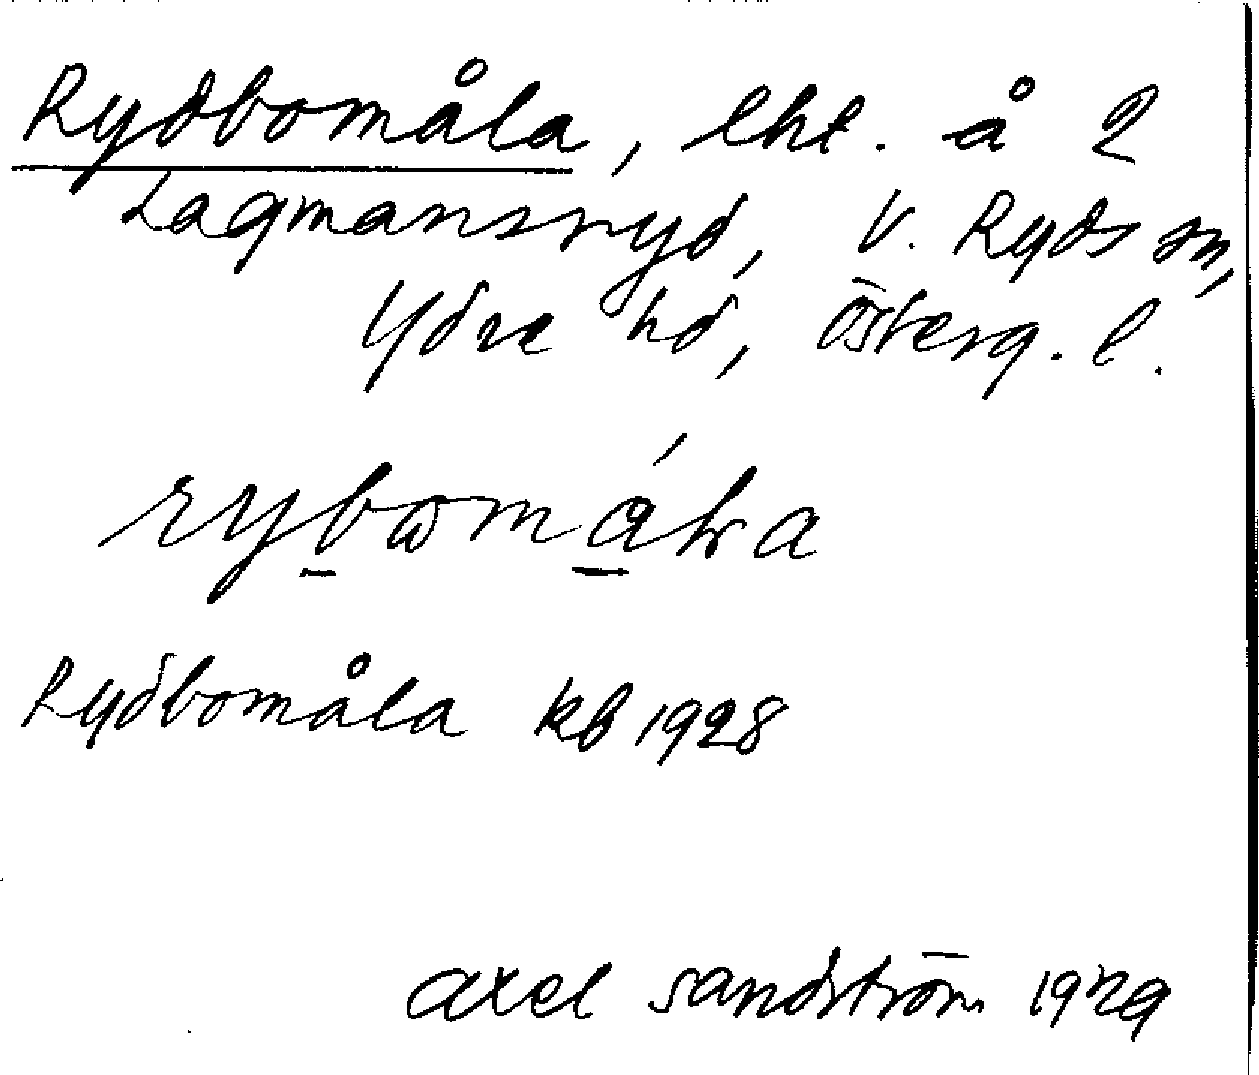 Rydbomåla, lht. å 2
Lagmansryd, V. Ryds sn,
Ydre hd, Österg. l.
Rydbomåla kb 1928
Axel Sandström 1929